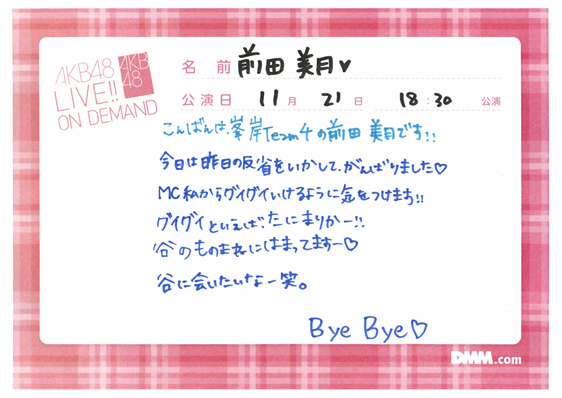 AKB48
LIVE!!
ON DEMAND
AKB
48
名 前 前田 美月♥
公演日 11月 21日 18:30 公演
こんばんは、峯岸Team4の前田 美月です!!
今日は昨日の反省をいかして、がんばりました♡
MC私からグイグイいけるように気をつけます!!
グイグイといえば、たにまりかー!!
谷のものまねにはまってますー♡
谷に会いたいなー笑。
Bye Bye♡
DMM.com